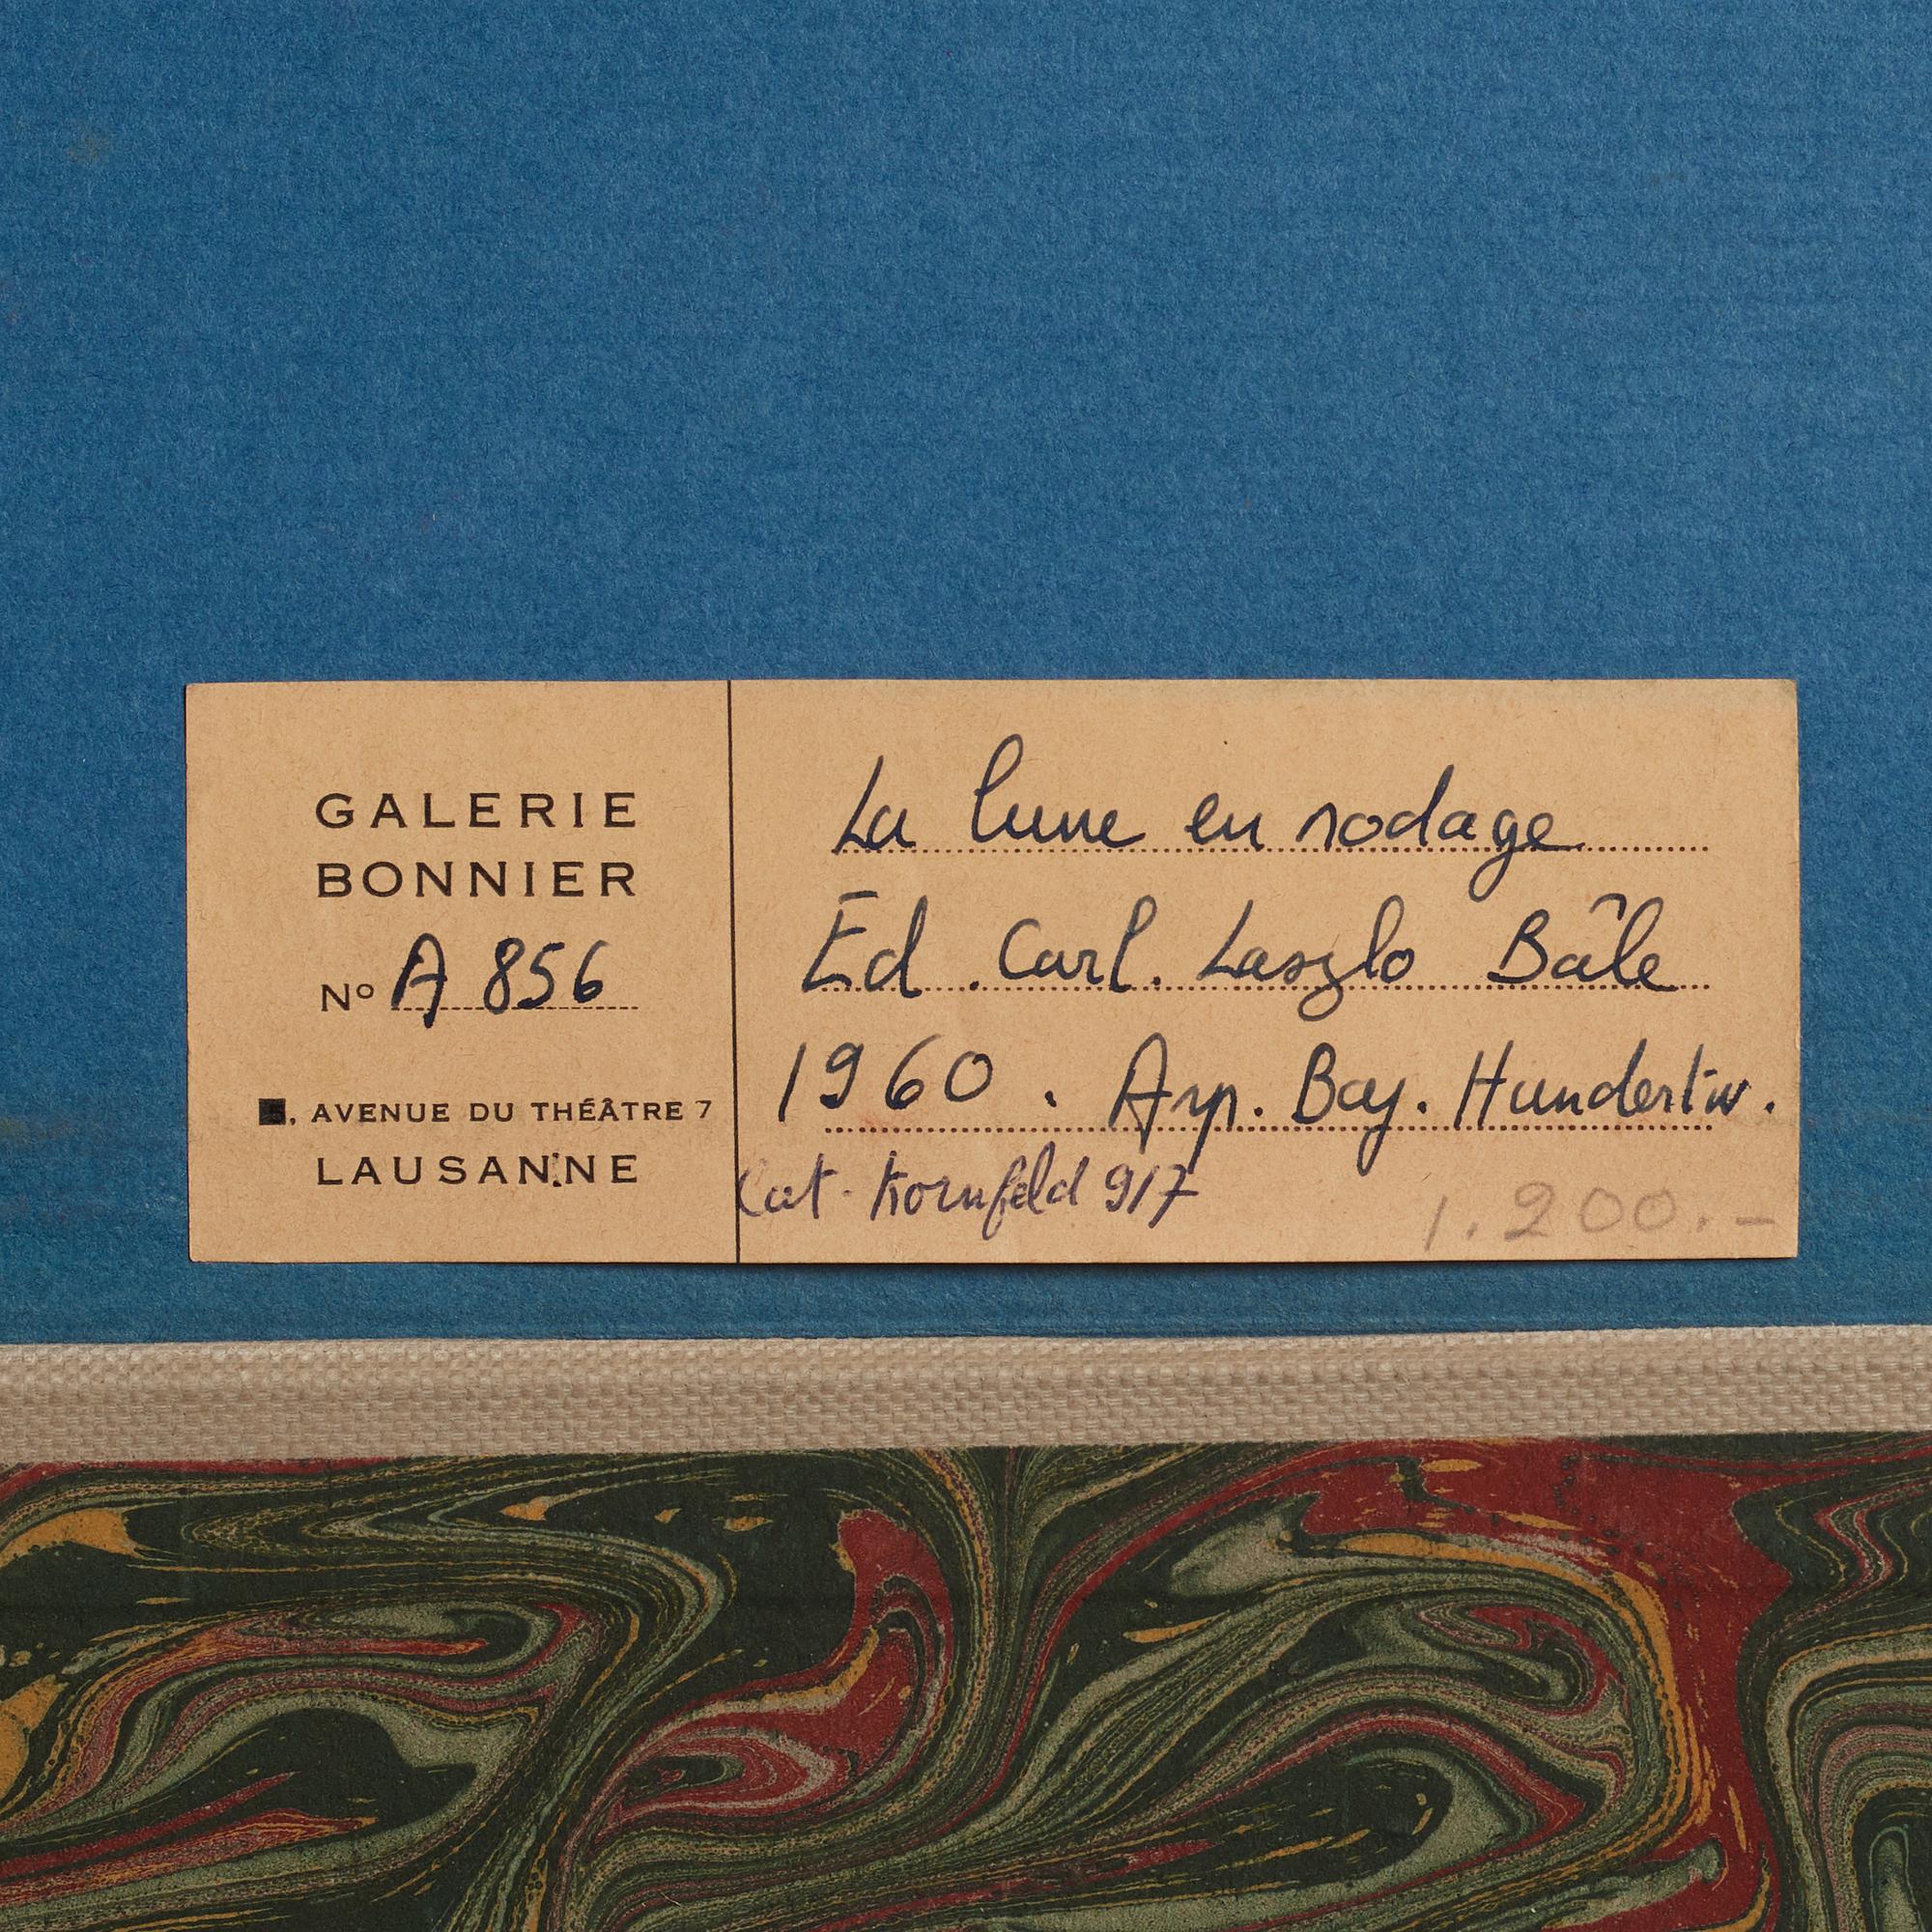 GALERIE
BONNIER
Nº A 856
, AVENUE DU THÉÂTRE 7
LAUSANNE
La lune en rodage
Ed. Carl. Laszlo Bâle
1960. Arp. Bay. Hundertw.
Cat. Kornfeld 917
1.200.-